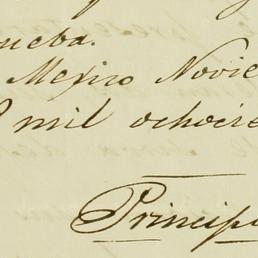 ueba.
Mexico Novie
mil ochocie
Principi